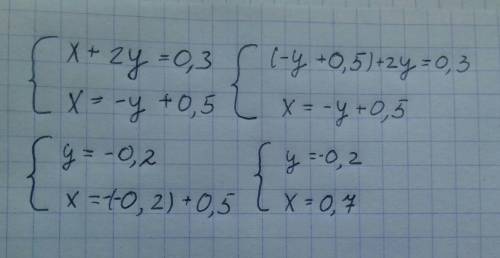 x + 2y = 0,3
x = -y + 0,5
(-y + 0,5) + 2y = 0,3
x = -y + 0,5
y = -0,2
x = -(-0,2) + 0,5
y = -0,2
x = 0,7